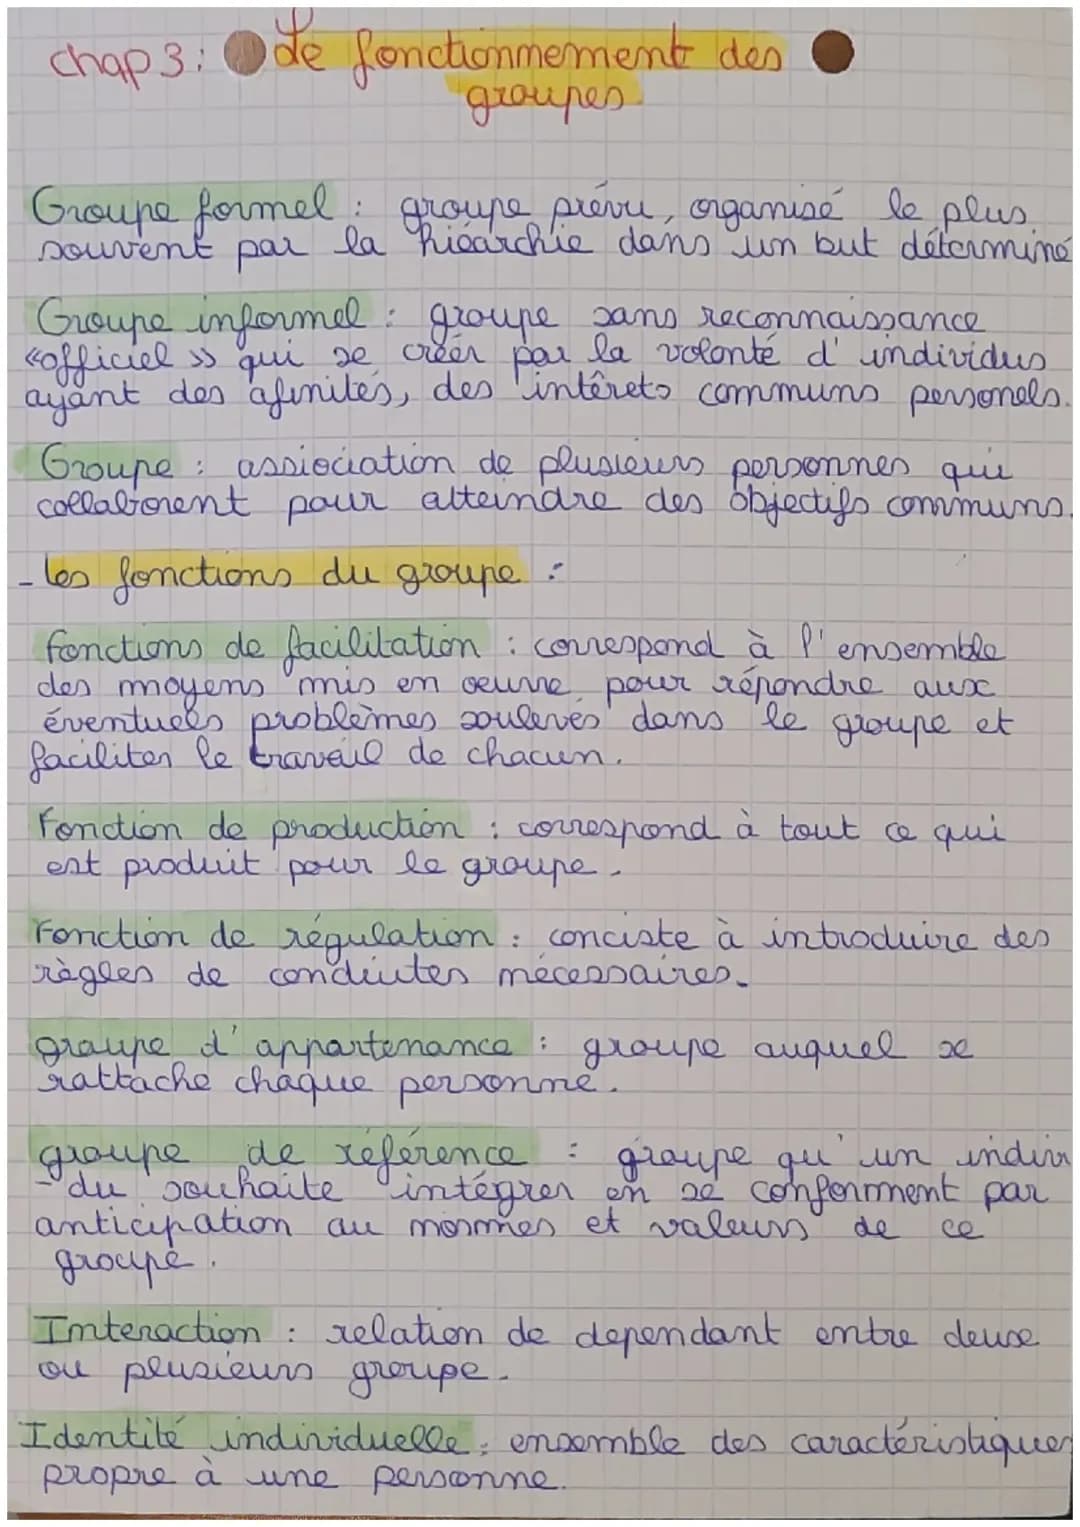 chap 3: Le fonctionnement des
groupes
Groupe formel : groupe prévu, organisé le plus
souvent par la hiéarchie dans un but déterminé
Groupe informel : groupe sans reconnaissance
«officiel» qui se créer par la volonté d'individus
ayant des afinités, des intérêts communs personels.
Groupe : assiociation de plusieurs personnes qui
collaborent pour atteindre des objectifs communs.
- les fonctions du groupe :
Fonctions de facilitation : correspond à l'ensemble
des moyens mis en oeuvre pour répondre aux
éventuels problèmes soulevés dans le groupe et
faciliter le travail de chacun.
Fonction de production : correspond à tout ce qui
est produit pour le groupe.
Fonction de régulation : conciste à introduire des
règles de conduites nécessaires.
groupe d'appartenance : groupe auquel se
rattache chaque personne.
groupe de référence : groupe qu'un indivi
-du souhaite intégrer en se conformment par
anticipation au normes et valeurs de ce
groupe.
Interaction : relation de dependant entre deux
ou plusieurs groupe.
Identité individuelle : ensemble des caractéristiques
propre à une personne.